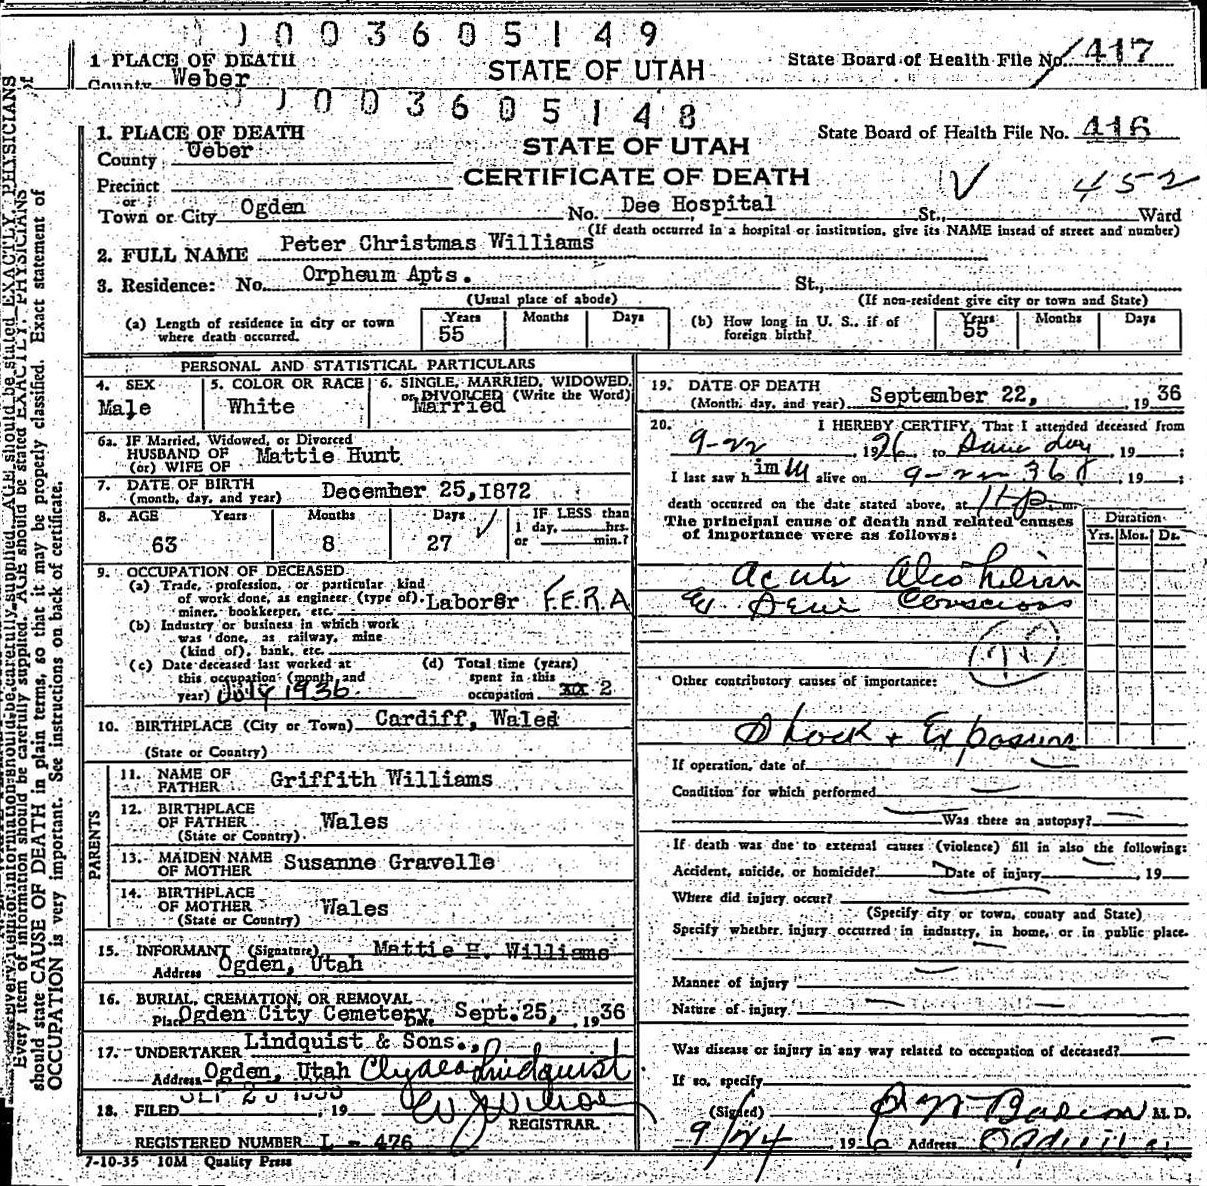 0 0 0 3 6 0 5 1 4 9
1 PLACE OF DEATH
State Board of Health File No. 417
STATE OF UTAH
County Weber
0 0 0 3 6 0 5 1 4 8
1. PLACE OF DEATH
State Board of Health File No. 416
County Weber
STATE OF UTAH
CERTIFICATE OF DEATH
V 452
Precinct
or
Town or City Ogden No. Dee Hospital St., Ward
(If death occurred in a hospital or institution, give its NAME insead of street and number)
2. FULL NAME Peter Christmas Williams
3. Residence: No. Orpheum Apts. St.,
(Usual place of abode) (If non-resident give city or town and State)
(a) Length of residence in city or town where death occurred. Years 55 Months Days
(b) How long in U. S., if of foreign birth? Years 55 Months Days
PERSONAL AND STATISTICAL PARTICULARS
4. SEX Male
5. COLOR OR RACE White
6. SINGLE, MARRIED, WIDOWED, or DIVORCED (Write the Word) Married
6a. IF Married, Widowed, or Divorced
HUSBAND OF Mattie Hunt
(or) WIFE OF
7. DATE OF BIRTH (month, day, and year) December 25, 1872
8. AGE Years 63 Months 8 Days 27
IF LESS than 1 day, hrs. or min.?
9. OCCUPATION OF DECEASED
(a) Trade, profession, or particular kind
of work done, as engineer (type of) Laborer F.E.R.A
miner, bookkeeper, etc.
(b) Industry or business in which work
was done, as railway, mine
(kind of), bank, etc.
(c) Date deceased last worked at this occupation (month and year) July 1936
(d) Total time (years) spent in this occupation 2
10. BIRTHPLACE (City or Town) Cardiff, Waled
(State or Country)
PARENTS
11. NAME OF FATHER Griffith Williams
12. BIRTHPLACE OF FATHER Wales
(State or Country)
13. MAIDEN NAME OF MOTHER Susanne Gravelle
14. BIRTHPLACE OF MOTHER Wales
(State or Country)
15. INFORMANT (Signature) Mattie H. Williams
Address Ogden, Utah
16. BURIAL, CREMATION, OR REMOVAL
Place Ogden City Cemetery Date Sept. 25, 1936
17. UNDERTAKER Lindquist & Sons.,
Address Ogden, Utah Clyde Lindquist
18. FILED , 19
REGISTRAR.
REGISTERED NUMBER L - 476
7-10-35 10M Quality Press
19. DATE OF DEATH
(Month, day, and year) September 22, 1936
20. I HEREBY CERTIFY, That I attended deceased from
9-22, 1936 to Same day, 19 ;
I last saw him alive on 9-22 36, 19 ;
death occurred on the date stated above, at 11 p m.
The principal cause of death and related causes
of importance were as follows:
Duration
Yrs. Mos. Ds.
Acute Alcoholism
Semi Conscious
75
Other contributory causes of importance:
Shock + Exposure
If operation, date of
Condition for which performed
Was there an autopsy?
If death was due to external causes (violence) fill in also the following:
Accident, suicide, or homicide? Date of injury , 19
Where did injury occur?
(Specify city or town, county and State)
Specify whether injury occurred in industry, in home, or in public place.
Manner of injury
Nature of injury
Was disease or injury in any way related to occupation of deceased?
If so, specify
(Signed) M. D.
9/24 1936 Address Ogden
Every item of information should be carefully supplied. AGE should be stated EXACTLY. PHYSICIANS
should state CAUSE OF DEATH in plain terms, so that it may be properly classified. Exact statement of
OCCUPATION is very important. See instructions on back of certificate.